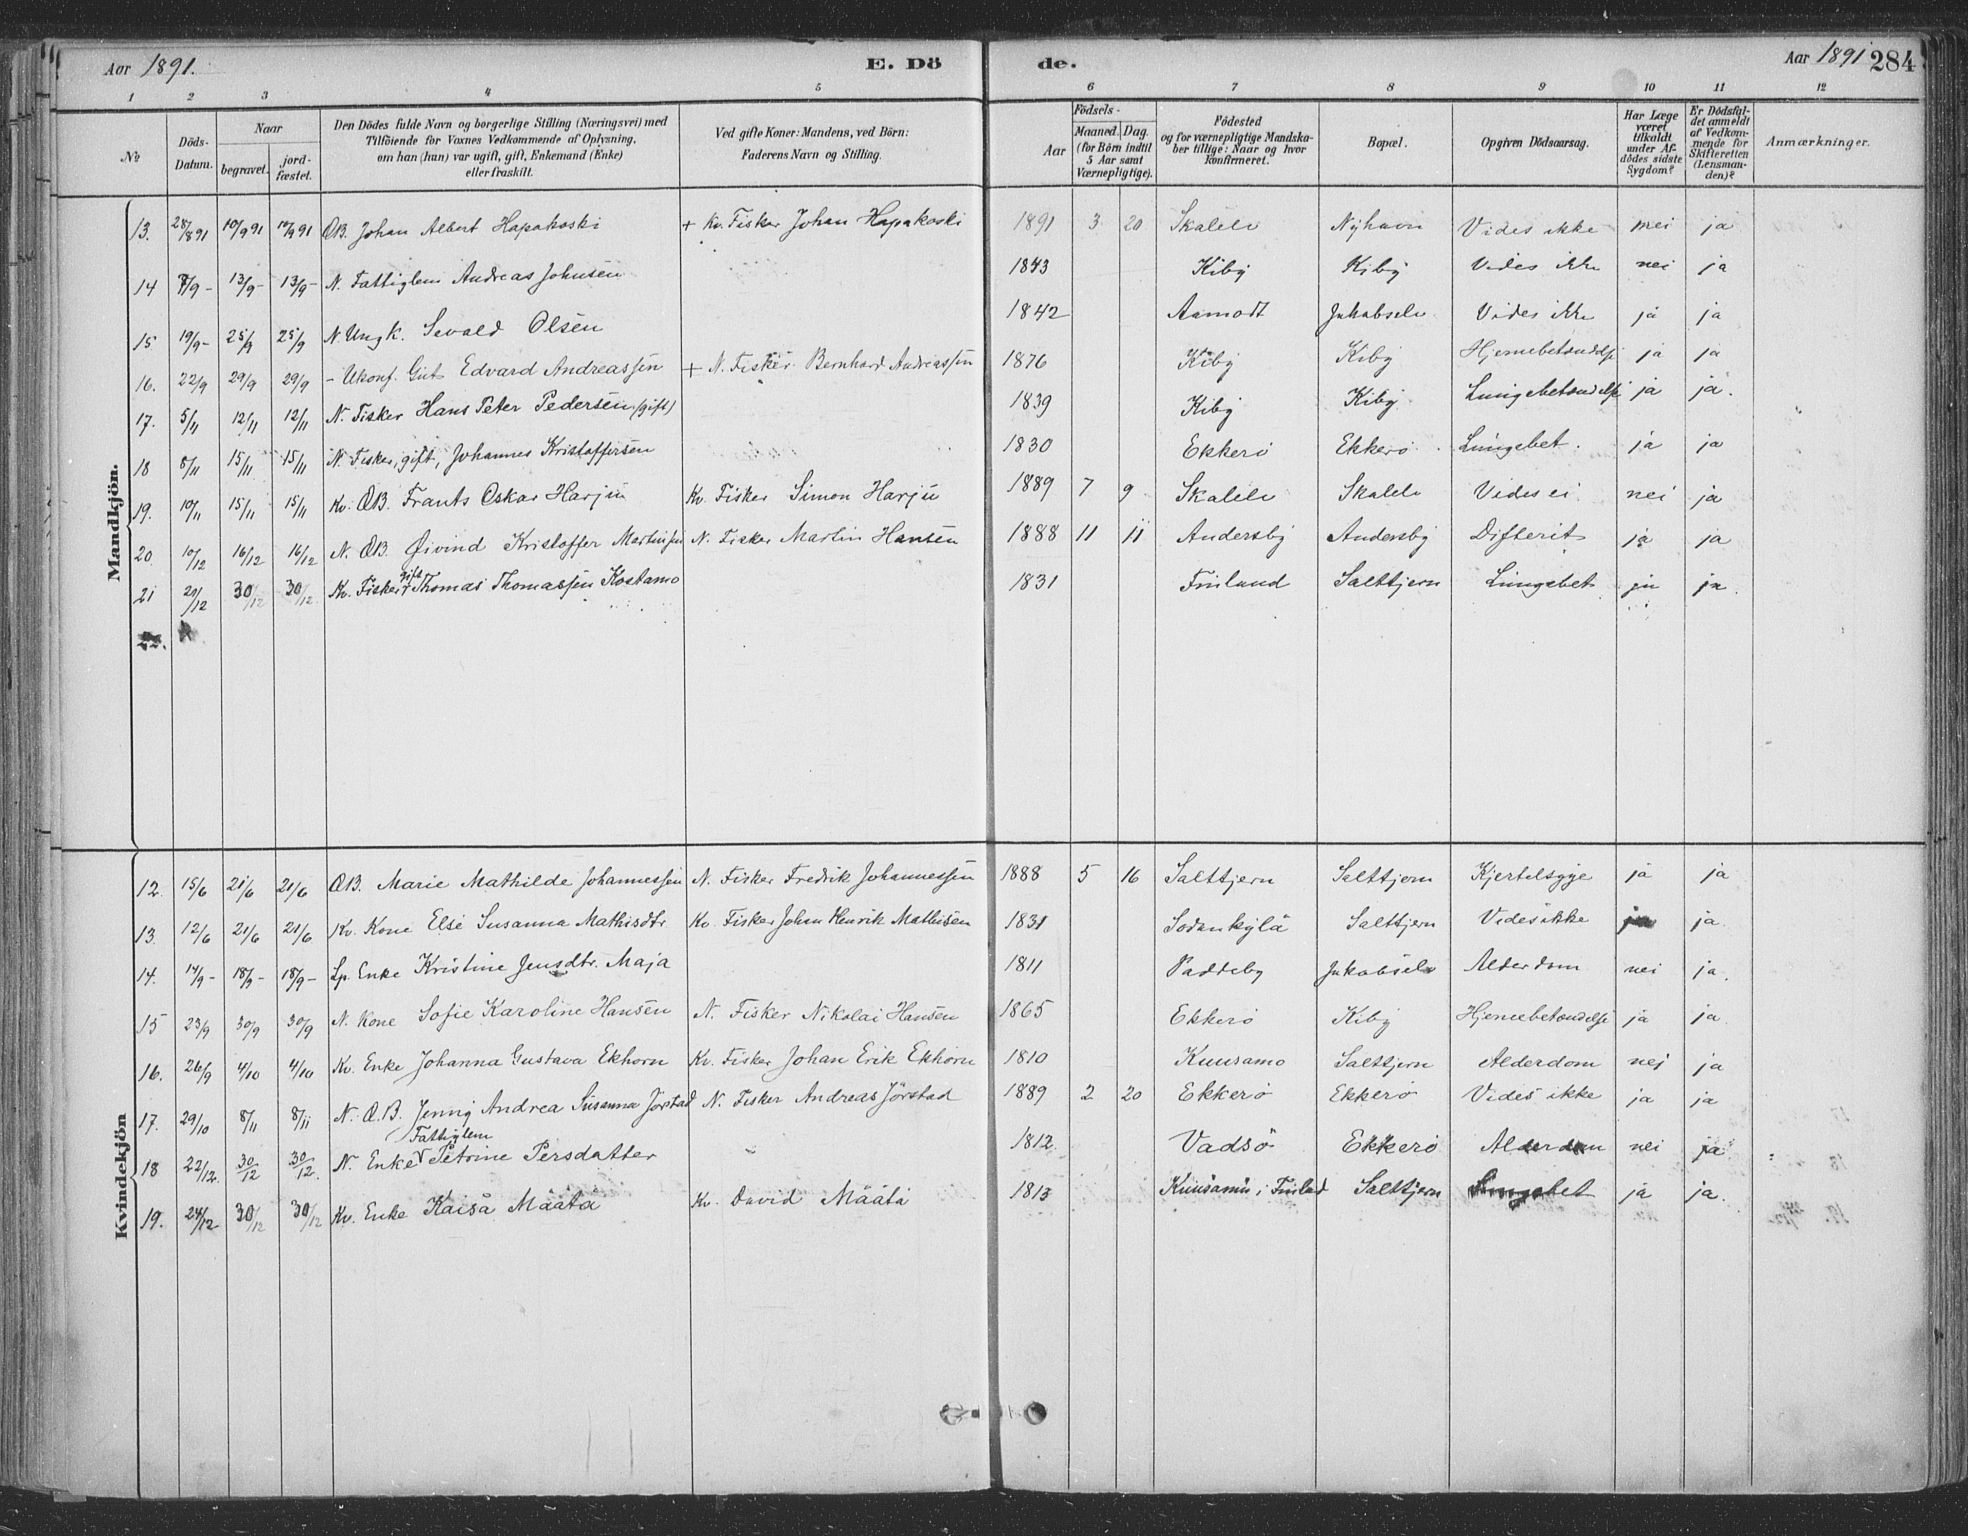 Aar 1891. E. Dö de. Aar 1891 284
1 2 3 4 5 6 7 8 9 10 11 12
№ Döds-Datum. Naar begravet. jord-fæstet. Den Dödes fulde Navn og borgerlige Stilling (Næringsvei) med Tilföiende for Voxnes Vedkommende af Oplysning, om han (hun) var ugift, gift, Enkemand (Enke) eller fraskilt. Ved gifte Koner: Mandens, ved Börn: Faderens Navn og Stilling. Födsels- Aar Maaned. Dag. (for Börn indtil 5 Aar samt Værnepligtige). Födested og for værnepligtige Mandska-ber tillige: Naar og hvor konfirmeret. Bopæl. Opgiven Dödsaarsag. Har Læge været tilkaldt under Af-dödes sidste Sygdom? Er Dödsfal-det anmeldt af Vedkom-mende for Skifteretten (Lensman-den)? Anmærkninger.
Mandkjön.
13. 28/8 91 10/9 91 10/9 91 ÆB. Johan Albert Hapakoski + Kv. Fisker Johan Hapakoski 1891 3 20 Skalelv Nyhavn Vides ikke nei ja
14 7/9 - 13/9 - 13/9 - N. Fattiglem Andreas Johnsen 1843 Kiby Kiby Vides ikke nei ja
15 19/9 - 25/9 25/9 N. Ungk. Sevald Olsen 1842 Aamodt Jakobselv Vides ikke ja ja
16. 22/9 29/9 29/9 - Ukonf. Gut Edvard Andreassen + N. Fisker Bernhard Andreassen 1876 Kiby Kiby Hjernebetændelse ja ja
17. 5/11 12/11 12/11 N. Fisker Hans Peter Pedersen (gift) 1839 Kiby Kiby Lungebetændelse ja ja.
18 8/11 15/11 15/11 N. Fisker, gift, Johannes Kristoffersen 1830 Ekkerö Ekkerö Lungebet. ja ja
19. 10/11 15/11 15/11 Kv. ÆB. Frants Oskar Harju Kv. Fisker Simon Harju 1889 7 9 Skalelv Skalelv Vides ei nei ja
20 10/12 16/12 16/12 N. ÆB. Öivind Kristoffer Martinsen N. Fisker Martin Hansen 1888 11 11 Andersby Andersby Difterit ja ja
21 20/12 30/12 30/12 Kv. Fisker gift Thomas Thomassen Kostamo 1831 Finland Salttjern Lungebet. ja ja.
22.
Kvindekjön
12. 15/6 21/6 21/6 ÆB. Marie Mathilde Johannessen N. Fisker Fredrik Johannessen 1888 5 16 Salttjern Salttjern Kjertelsyge ja ja
13. 12/6 21/6 21/6 Kv. Kone Else Susanna Mathisdtr Kv. Fisker Johan Henrik Mathisen 1831 Sodankylä Salttjern Vides ikke ja ja.
14. 14/9 - 18/9 - 18/9 - Lp. Enke Kristine Jensdtr. Maja 1811 Paddeby Jakobselv Alderdom nei ja.
15 23/9 30/9 30/9 N. Kone Sofie Karoline Hansen N. Fisker Nikolai Hansen 1865 Ekkerö Kiby Hjernebetændelse ja ja.
16. 26/9 4/10 4/10 Kv. Enke Johanna Gustava Ekhorn Kv. Fisker Johan Erik Ekhorn 1810 Kuusamo Salttjern Alderdom nej ja
17. 29/10 8/11 8/11 N. Æ.B. Jenny Andrea Susanna Jörstad N. Fisker Andreas Jörstad 1889 2 20 Ekkerö Ekkerö Vides ikke ja ja
18 22/12. 30/12 30/12. N. Enke Fattiglem Petrine Persdatter 1812. Vadsö Ekkerö Alderdom nei ja
19. 24/12 30/12 30/12 Kv. Enke Kaisa Määtä Kv. David Määtä 1813 Kuusamo i Finlad Salttjern Lungebet ja ja.